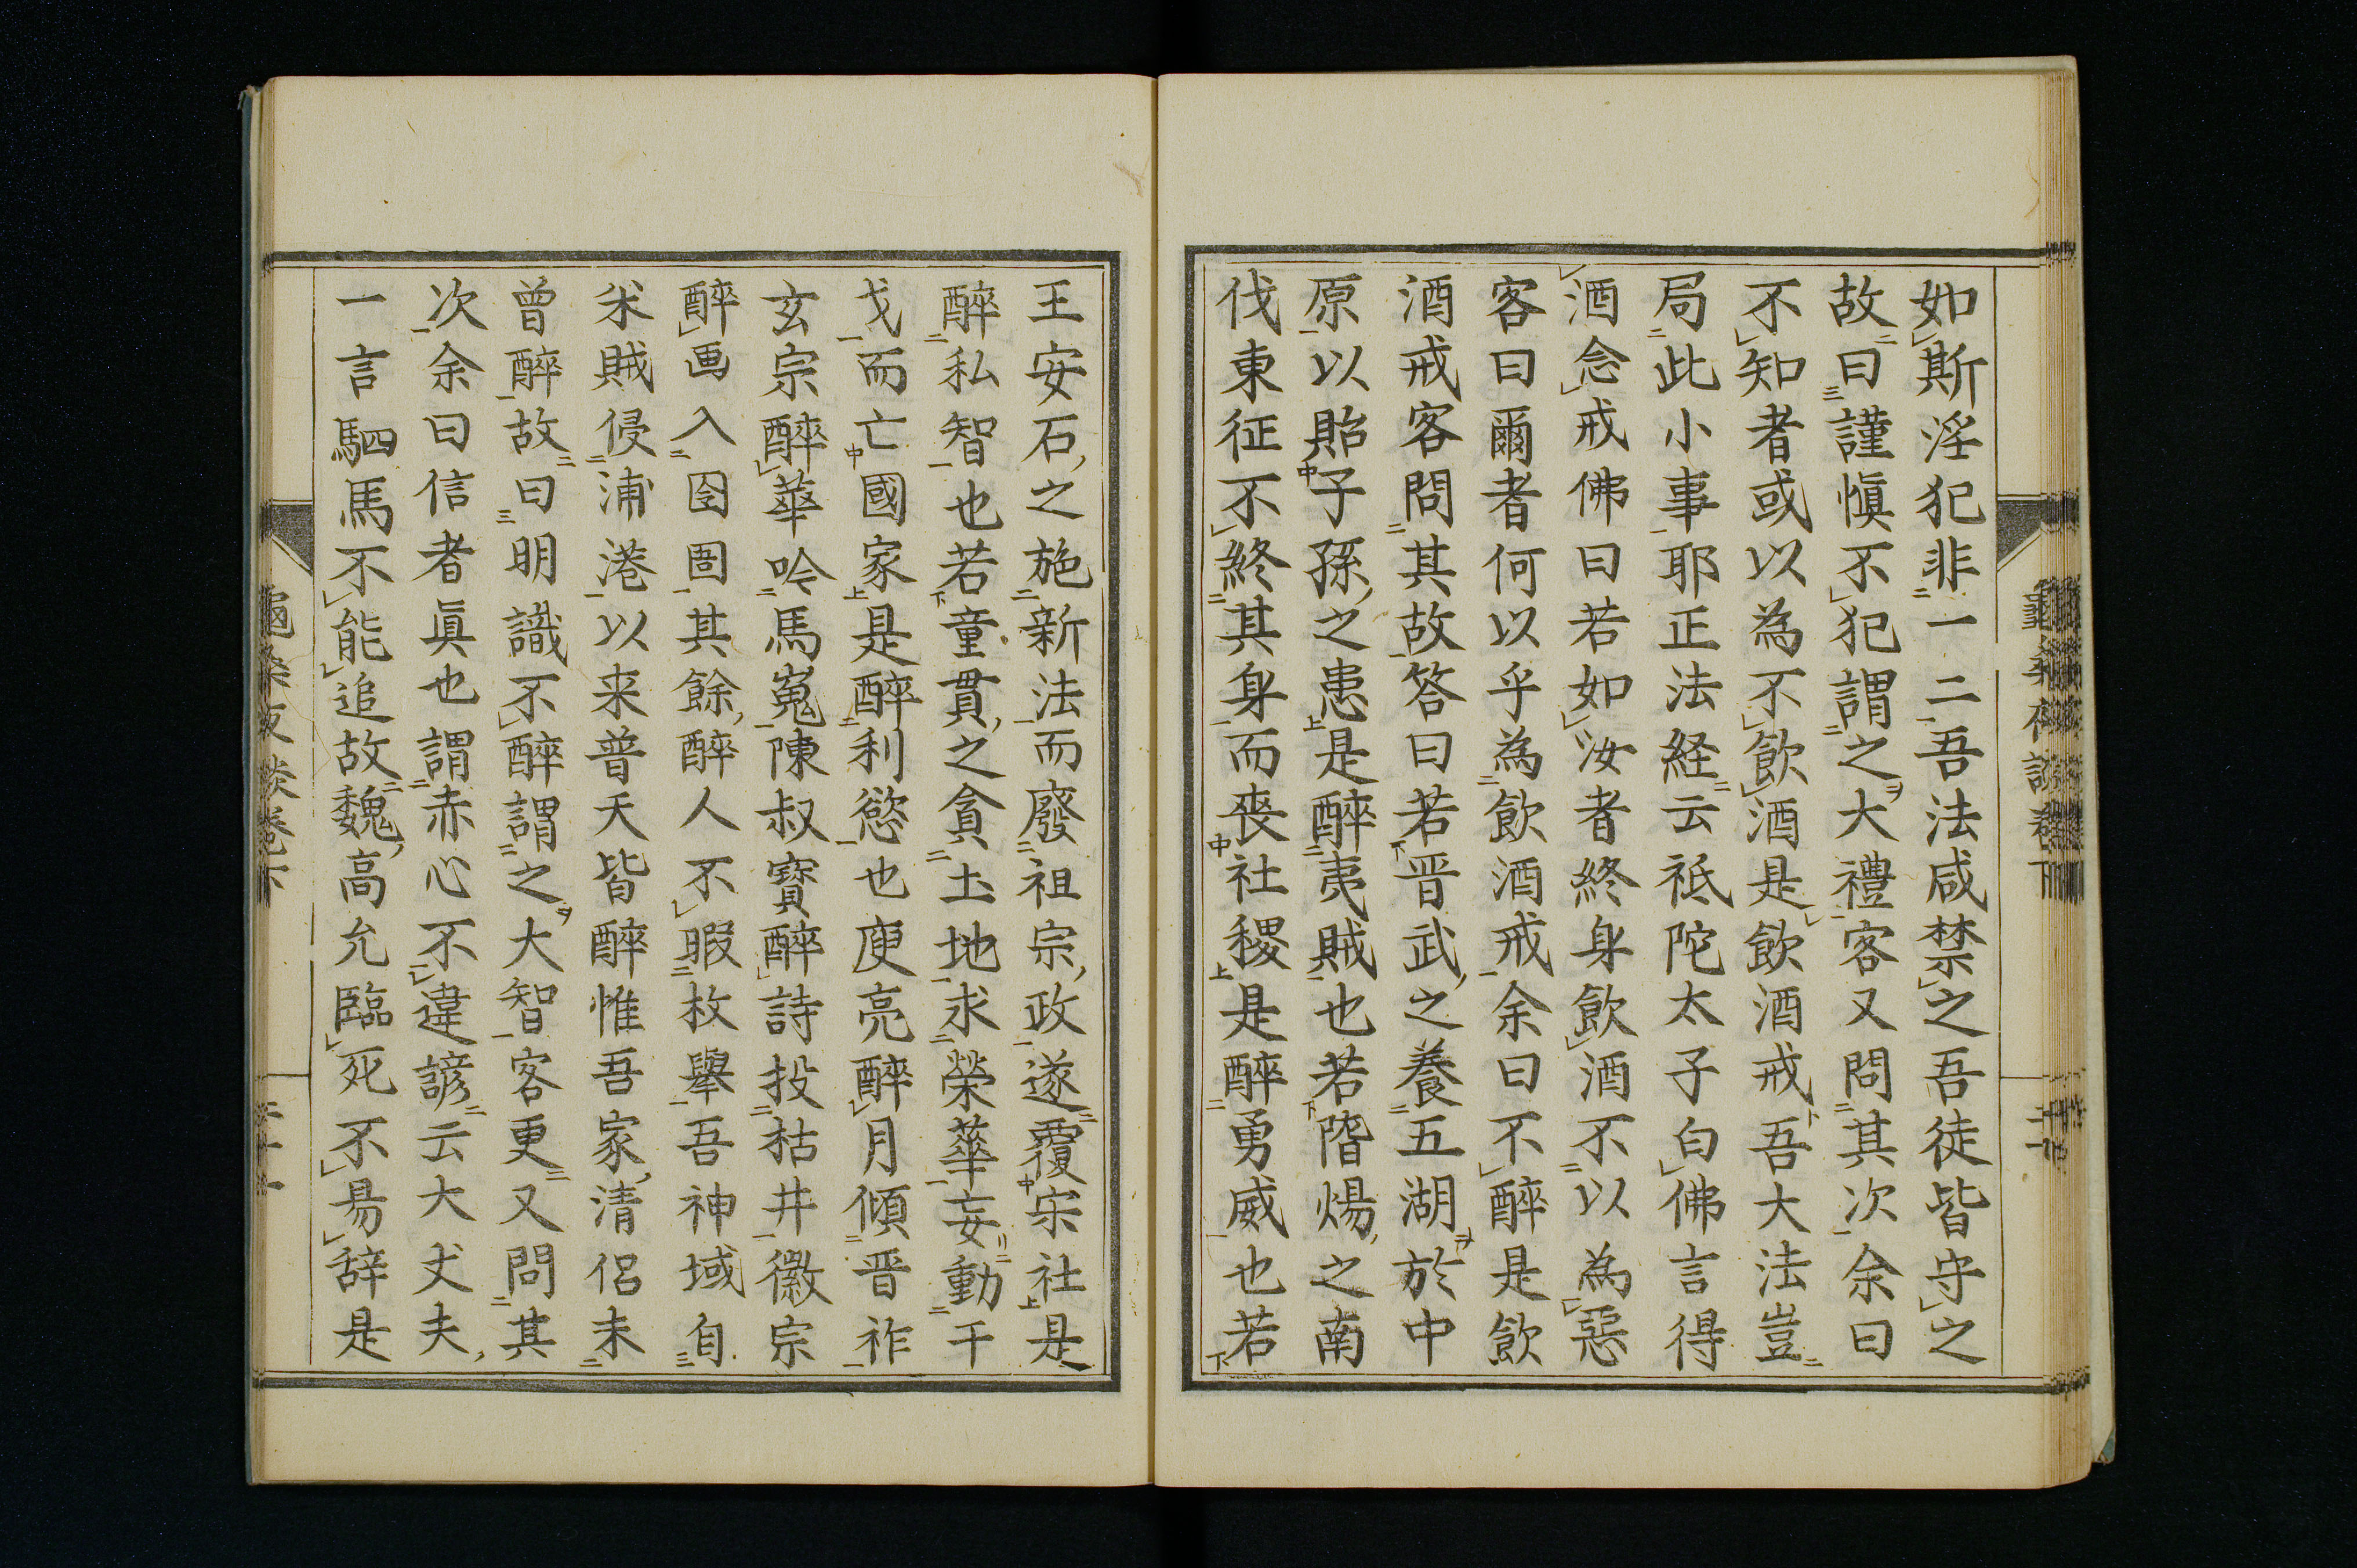 如斯淫犯非一二吾法咸禁之吾徒皆守之
故曰謹愼不犯謂之大禮客又問其次余曰
不知者或以為不飲酒是飲酒戒吾大法豈
局此小事耶正法経云祗陀太子白佛言得
酒念戒佛曰若如汝者終身飲酒不以為惡
客曰爾者何以乎為飲酒戒余曰不醉是飲
酒戒客問其故答曰若晋武之養五湖於中
原以貽子孫之患是醉夷賊也若階煬之南
伐東征不終其身而喪社稷是醉勇威也若
王安石之施新法而廢祖宗政遂覆宗社是
醉私智也若童貫之貪土地求榮華妄動干
戈而亡國家是醉利慾也庾亮醉月傾晋祚
玄宗醉華吟馬嵬陳叔寶醉詩投枯井徽宗
醉画入囹圄其餘醉人不暇枚舉吾神域自
米賊侵浦港以来普天皆醉惟吾家清侶未
曾醉故曰明識不醉謂之大智客更又問其
次余曰信者眞也謂赤心不違諺云大丈夫
一言駟馬不能追故魏高允臨死不易辞是